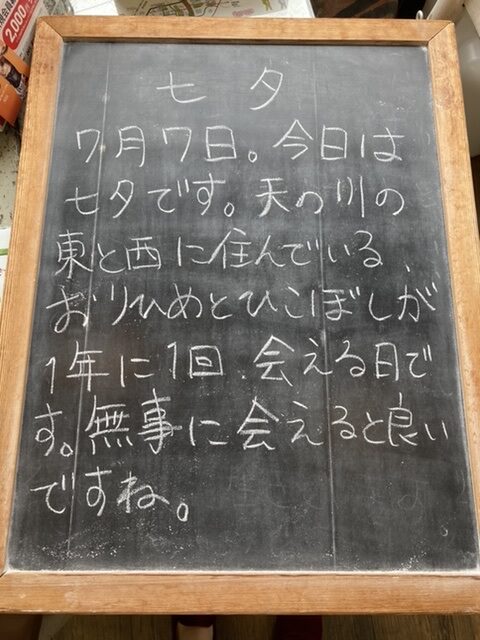 七夕
7月7日。今日は
七夕です。天の川の
東と西に住んでいる、
おりひめとひこぼしが
1年に1回、会える日で
す。無事に会えると良い
ですね。
2,000